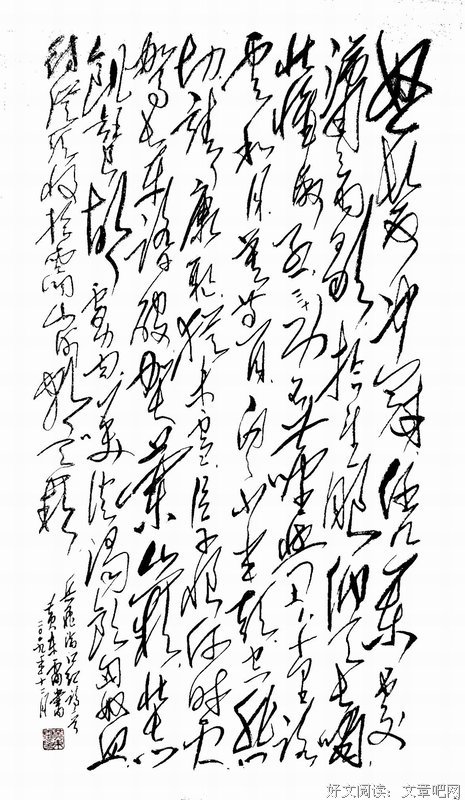 怒发冲冠凭栏处潇
潇雨歇抬望眼仰天长啸
壮怀激烈三十功名尘与土八千里路
云和月莫等闲白了少年头空悲
切靖康耻犹未雪臣子恨何时灭
驾长车踏破贺兰山缺壮志
饥餐胡虏肉笑谈渴饮匈奴血
待从头收拾旧山河朝天阙
岳飞满江红词一首
黄东雷书
二〇〇九年十二月
好文阅读：文章吧网